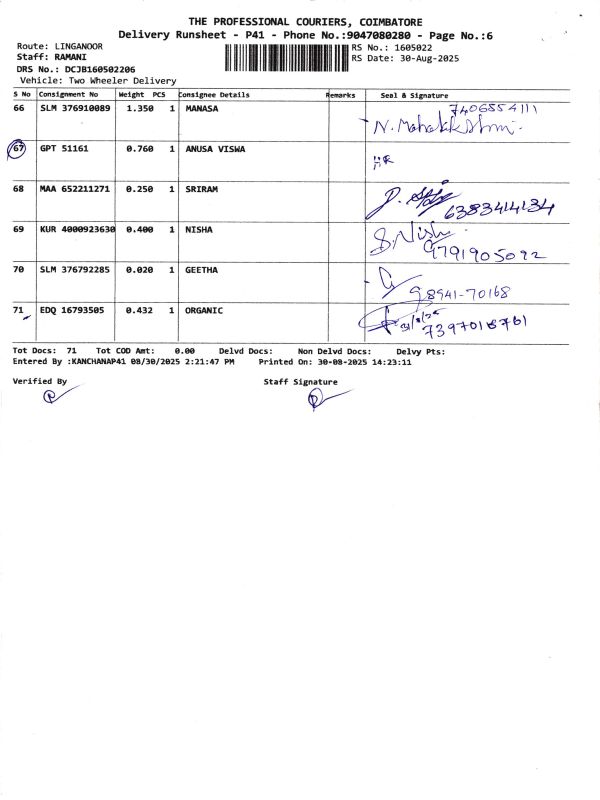 THE PROFESSIONAL COURIERS, COIMBATORE
Delivery Runsheet - P41 - Phone No.:9047080280 - Page No.:6
Route: LINGANOOR RS No.: 1605022
Staff: RAMANI RS Date: 30-Aug-2025
DRS No.: DCJB160502206
Vehicle: Two Wheeler Delivery
S No Consignment No Weight PCS Consignee Details Remarks Seal & Signature
66 SLM 376910089 1.350 1 MANASA 7406554111
N. Mahalakshmi
67 GPT 51161 0.760 1 ANUSA VISWA
68 MAA 652211271 0.250 1 SRIRAM
6383414134
69 KUR 4000923630 0.400 1 NISHA S. Nish
9791905092
70 SLM 376792285 0.020 1 GEETHA
98941-70168
71 EDQ 16793505 0.432 1 ORGANIC
7397018761
Tot Docs: 71 Tot COD Amt: 0.00 Delvd Docs: Non Delvd Docs: Delvy Pts:
Entered By :KANCHANAP41 08/30/2025 2:21:47 PM Printed On: 30-08-2025 14:23:11
Verified By Staff Signature